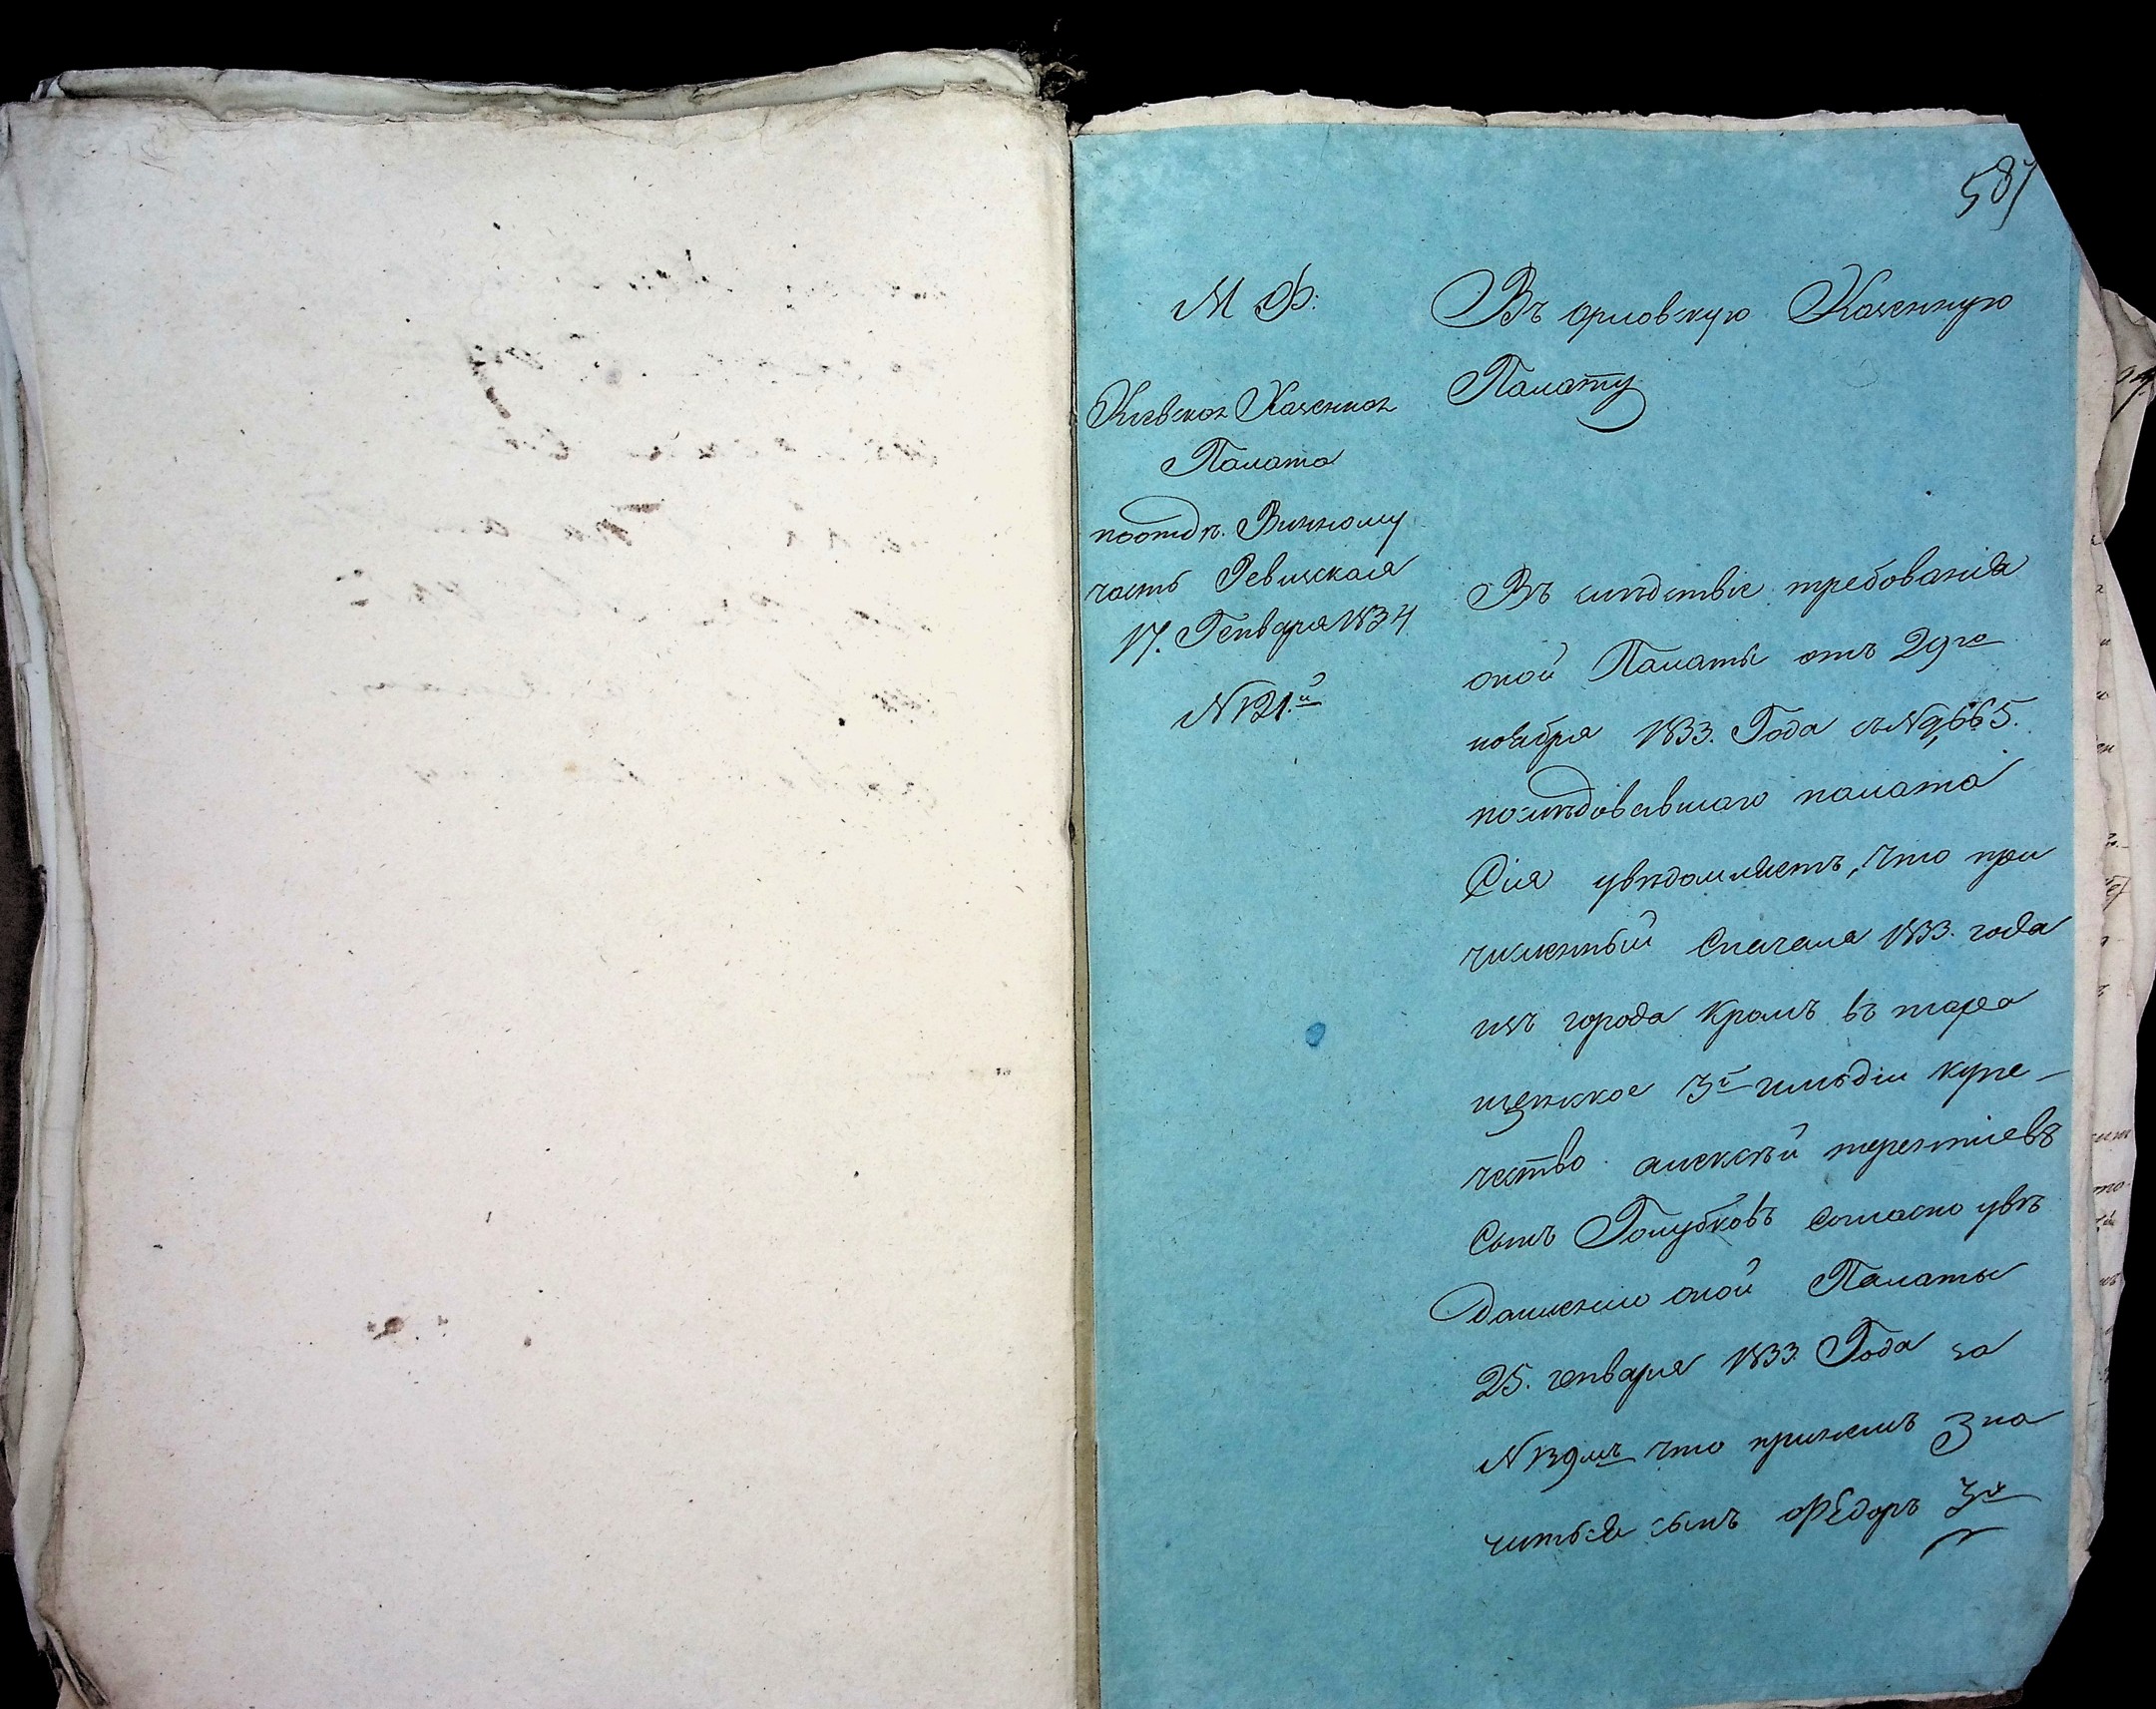 587
М Ф:
Киевская Казенная
Палата
поотдѣ. Винному
часть Ревизская
17. Генваря 1834
№ 121.й
Въ орловскую Казенную
Палату
Въ слѣдствіе требованія
оной Палаты отъ 29го
ноября 1833. Года за № 9,665.
послѣдовавшаго палата
Сія увѣдомляетъ, что при
численный Сначала 1833. года
изъ города Кромъ въ тара
щенское 3й гильдіи купе-
чество алексѣй терентіевъ
Сынъ Голубковъ Согласно увѣ
домленію оной Палаты
25. генваря 1833 Года за
№ 139мъ что принемъ Зна
читься сынъ Федоръ 3х